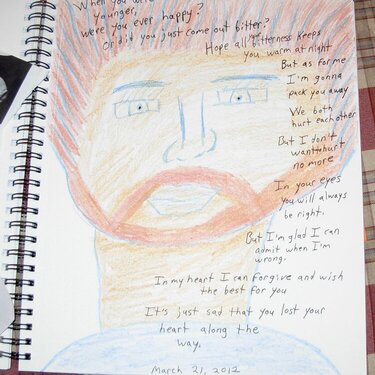 When you were
younger,
were you ever happy?
Or did you just come out bitter?
Hope all that bitterness keeps
you warm at night
But as for me
I'm gonna
pack you away
We both
hurt each other
But I don't
want hurt
no more
In your eyes
you will always
be right.
But I'm glad I can
admit when I'm
wrong.
In my heart I can forgive and wish
the best for you
It's just sad that you lost your
heart along the
way.
March 21, 2012